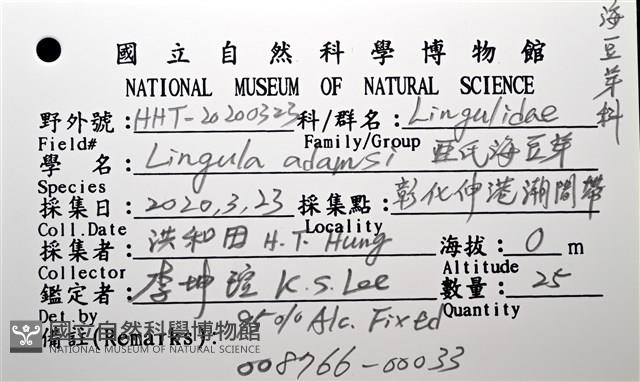 海豆芽科
國立自然科學博物館
NATIONAL MUSEUM OF NATURAL SCIENCE
野外號：HHT-20200323 科/群名：Lingulidae
Field# Family/Group
學 名：Lingula adamsi 亞氏海豆芽
Species
採集日：2020,3,23 採集點：彰化伸港潮間帶
Coll.Date Locality
採集者：洪和田 H.T. Hung 海拔：0 m
Collector Altitude
鑑定者：李坤瑄 K.S. Lee 數量：25
Det.by Quantity
備註(Remarks)：95% Alc. Fixed
008766-00033
國立自然科學博物館
NATIONAL MUSEUM OF NATURAL SCIENCE